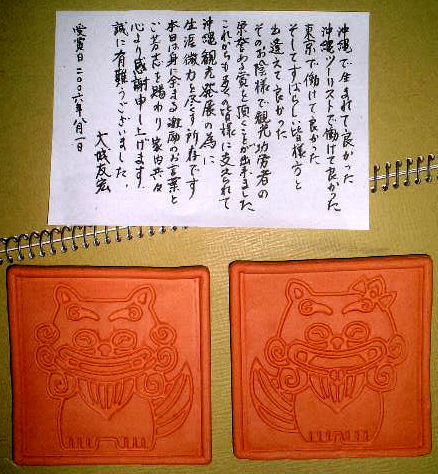 沖縄で生まれて良かった
沖縄ツーリストで働けて良かった
東京で働けて良かった
そしてすばらしい皆様方と
出逢えて良かった
そのお陰様で観光功労者の
栄誉ある賞を頂くことが出来ました
これからも多くの皆様に支えられて
沖縄観光発展の為に
生涯微力を尽す所存です
本日は身に余る激励のお言葉と
ご芳志を賜わり家内共々
心より感謝申し上げます
誠に有難うございました。
大城友宏
受賞日 二〇〇六年八月一日